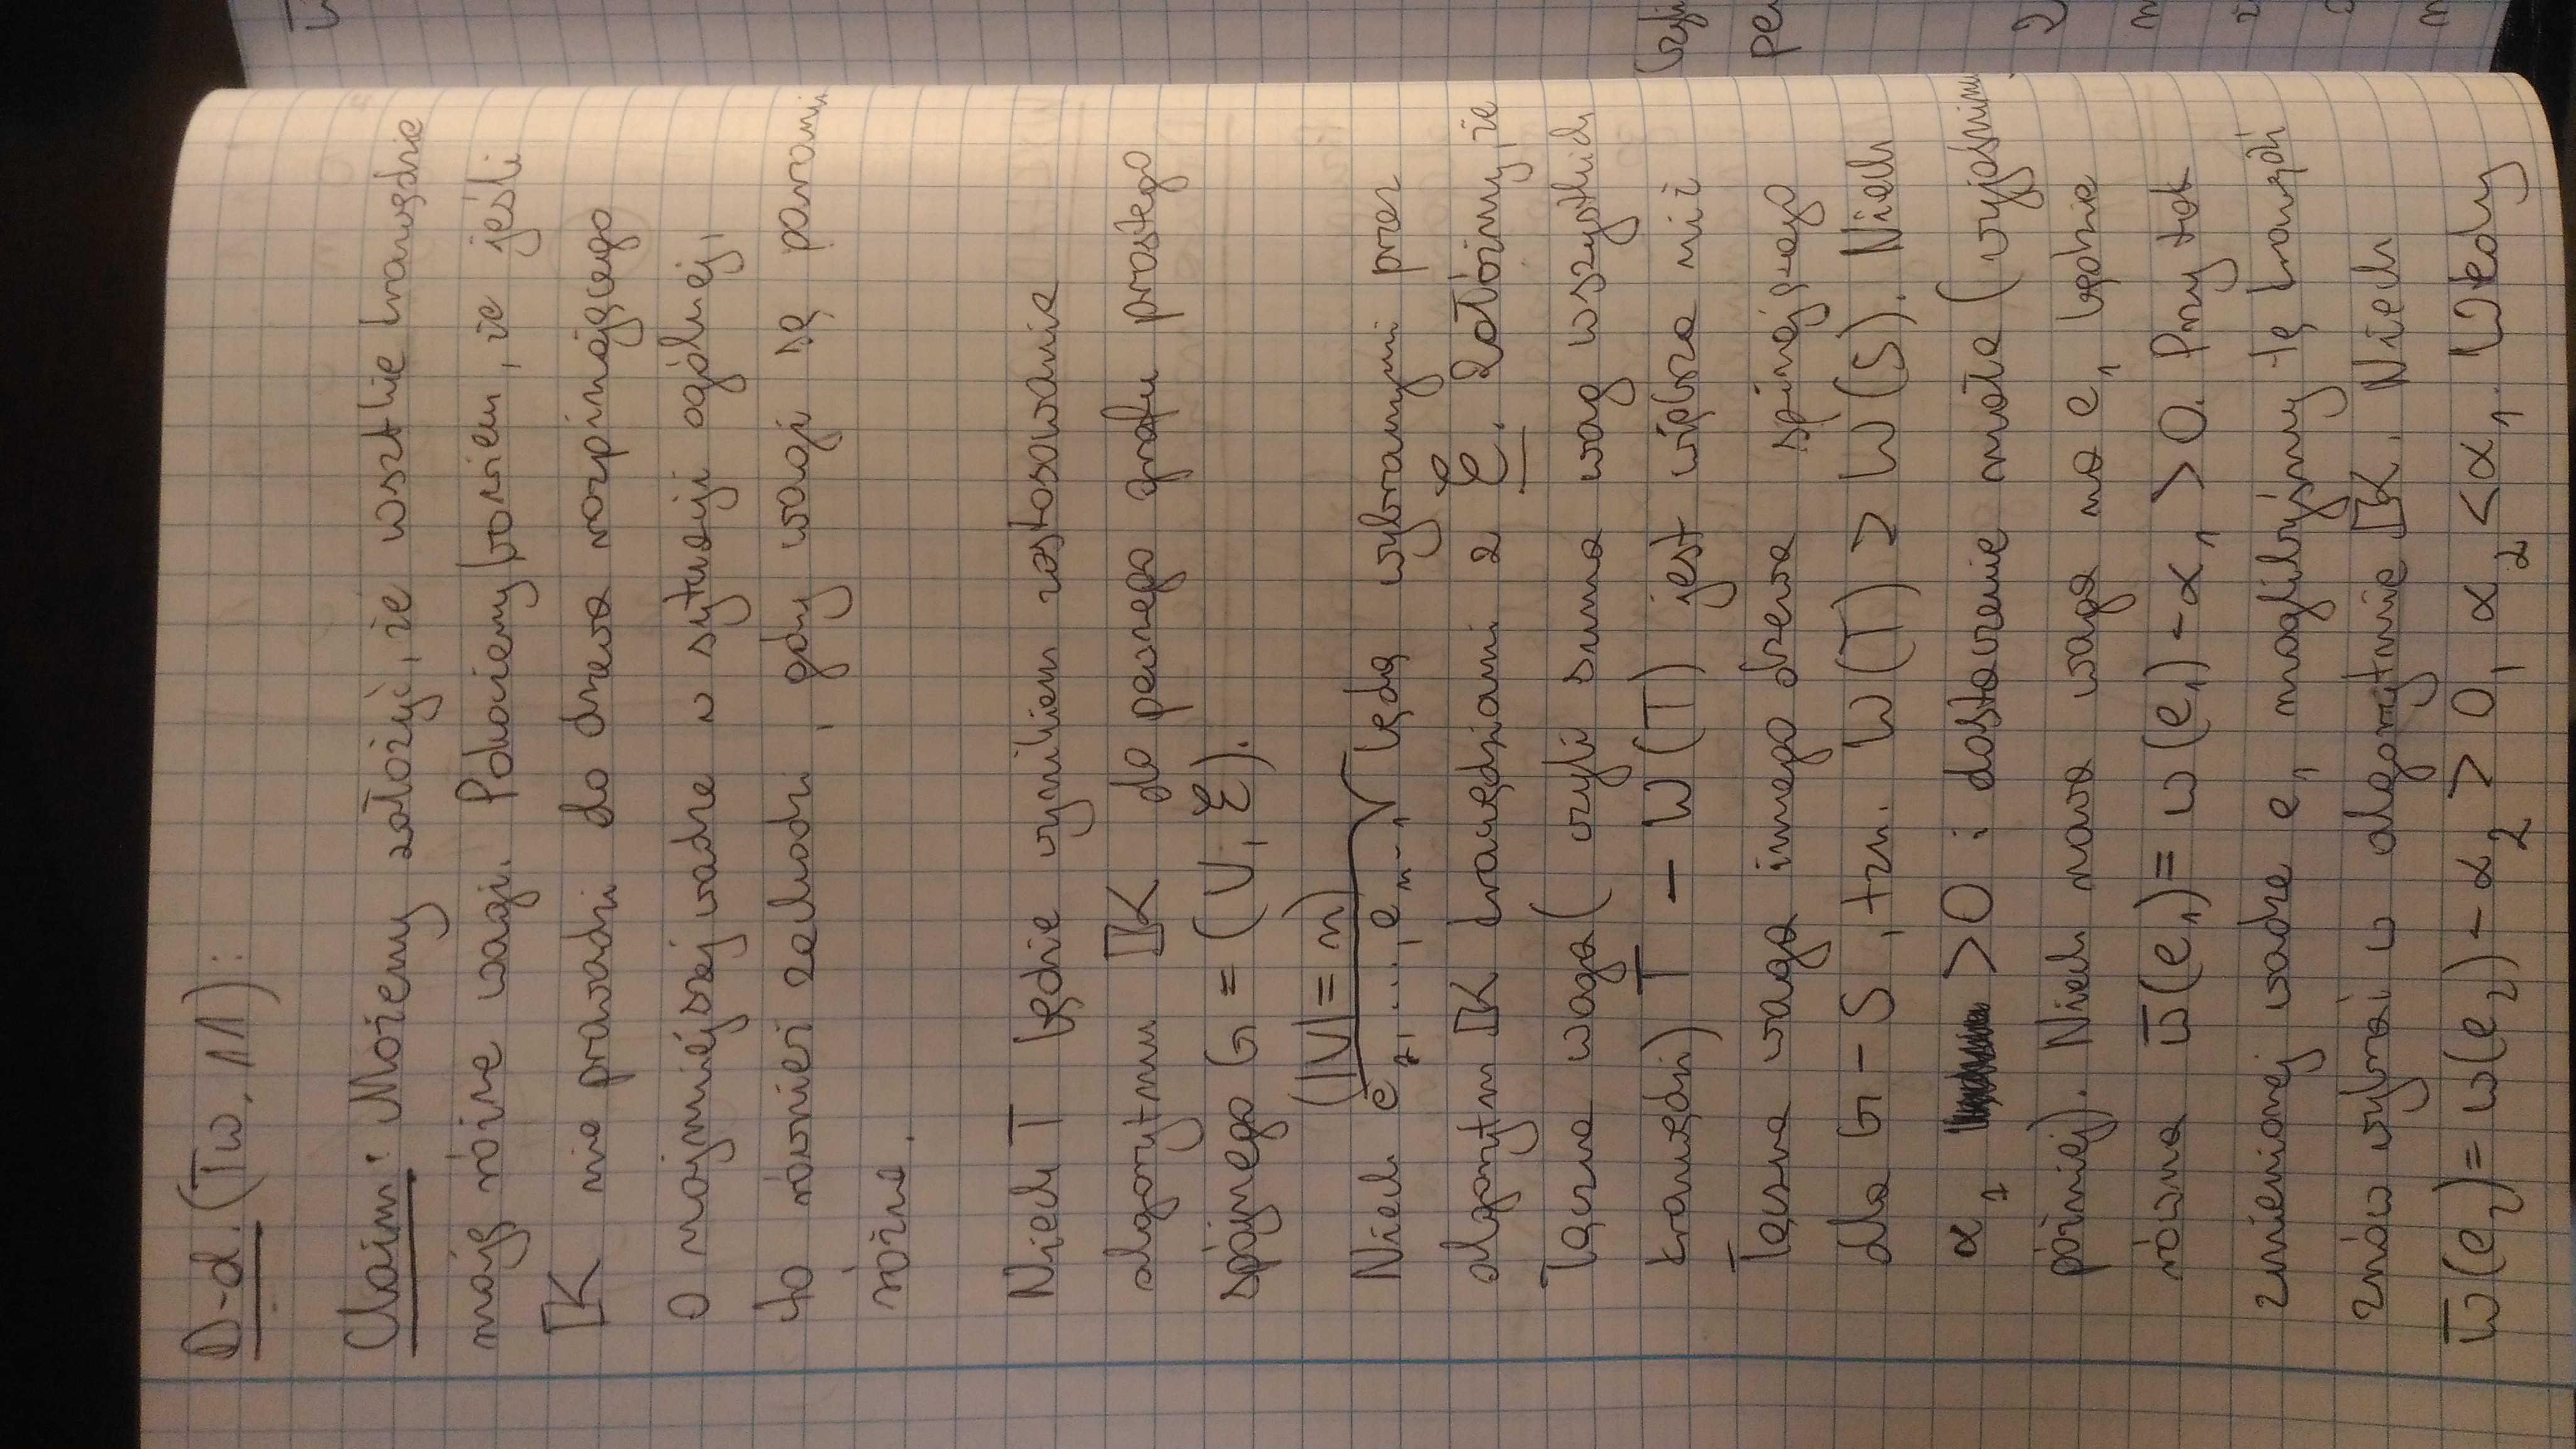 D-d. (Tw. 11):
Claim: Możemy założyć, że wsztkie krawędzie
mają różne wagi. Pokażemy bowiem, że jeśli
𝕂 nie prowadzi do drzewa rozpinającego
o najmniejszej wadze w sytuacji ogólnej,
to również zachodzi, gdy wagi są parami
różne.
Niech T będzie wynikiem zastosowania
algorytmu 𝕂 do pewnego grafu prostego
spójnego G = (V, Ɛ).
(|V| = n)
Niech e₁, ..., eₙ₋₁ będą wybranymi przez
algorytm 𝕂 krawędziami z Ɛ. Załóżmy, że
łączna waga (czyli suma wag wszystkich
krawędzi) T – W(T) jest większa niż
łączna waga innego drzewa spinającego
dla G – S, tzn. W(T) > W(S). Niech
α₁ > 0 i dostatecznie mała (wyjaśnimy
później). Niech nowa waga na e₁ będzie
równa w̄(e₁) = w(e₁) - α₁ > 0. Przy tak
zmienionej wadze e₁ moglibyśmy tę krawędź
znów wybrać w algorytmie 𝕂. Niech
w̄(e₂) = w(e₂) - α₂ > 0, α₂ < α₁. Wtedy